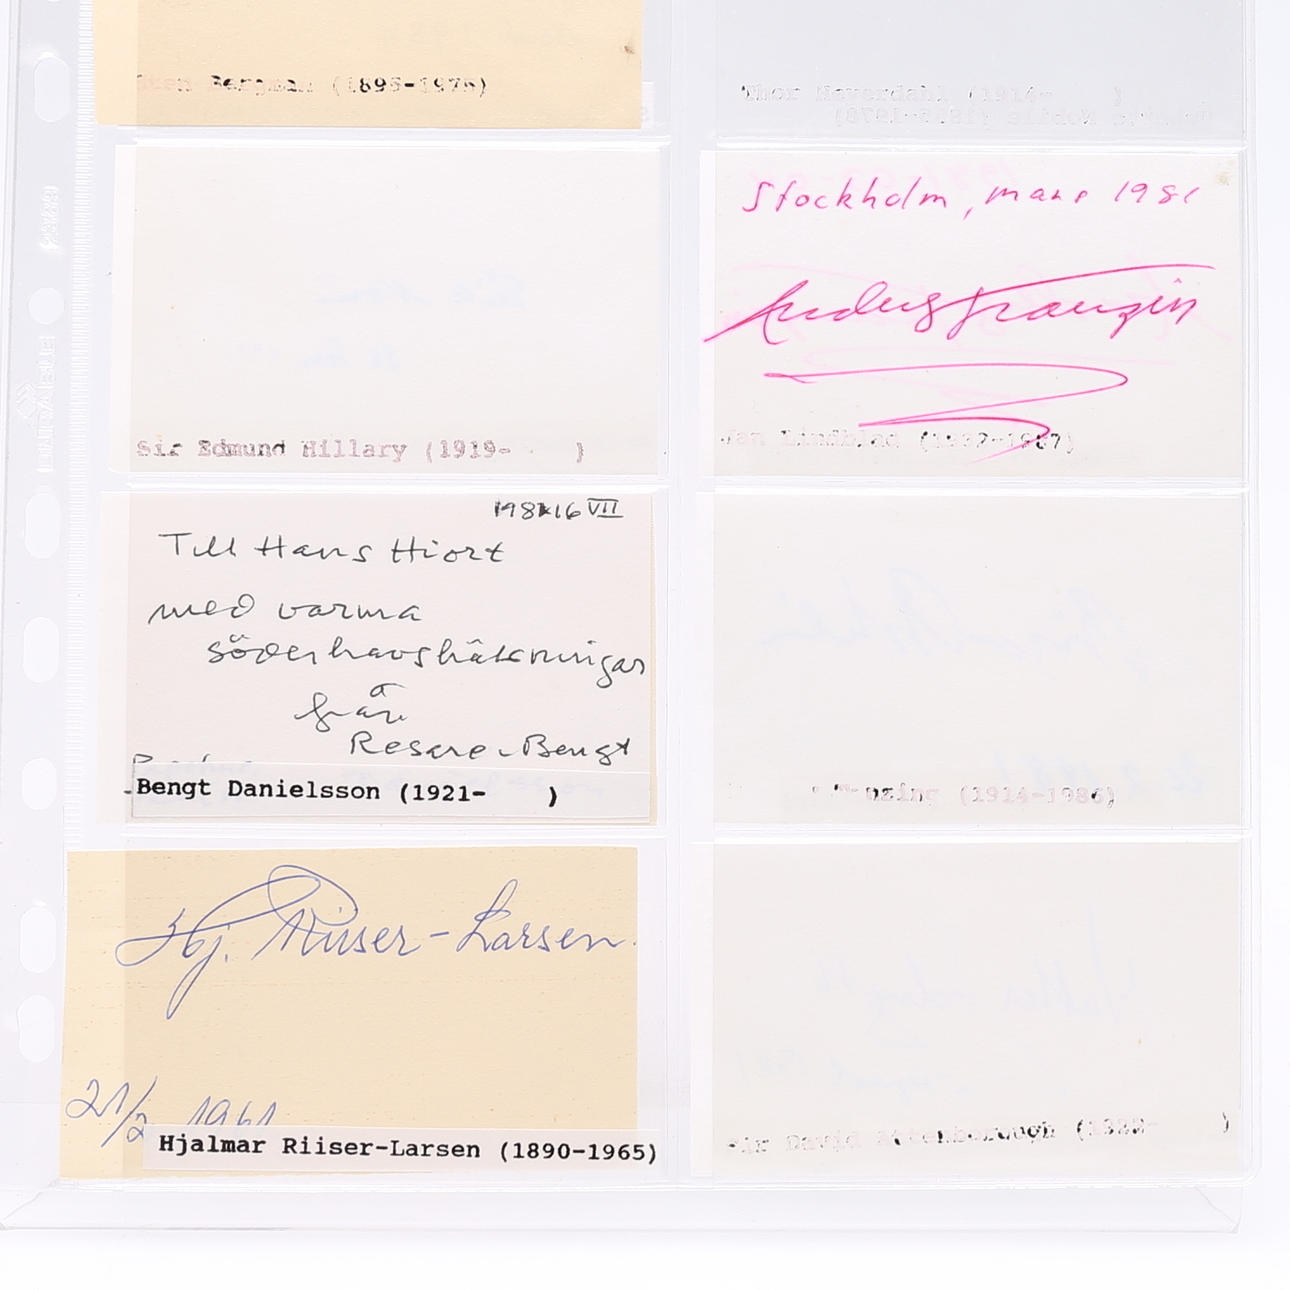 Sten Bergman (1895-1975)
Thor Heyerdahl (1914- )
Sir Edmund Hillary (1919- )
Stockholm, mars 1981
Anders Franzén
Jan Lindblad (1932-1987)
1981 16 VII
Till Hans Hiort
med varma
söderhavshälsningar
från
Resare-Bengt
Bengt Danielsson (1921- )
(1914-1986)
Hj. Riiser-Larsen
21/2 1961
Hjalmar Riiser-Larsen (1890-1965)
Sir David Attenborough (1922- )